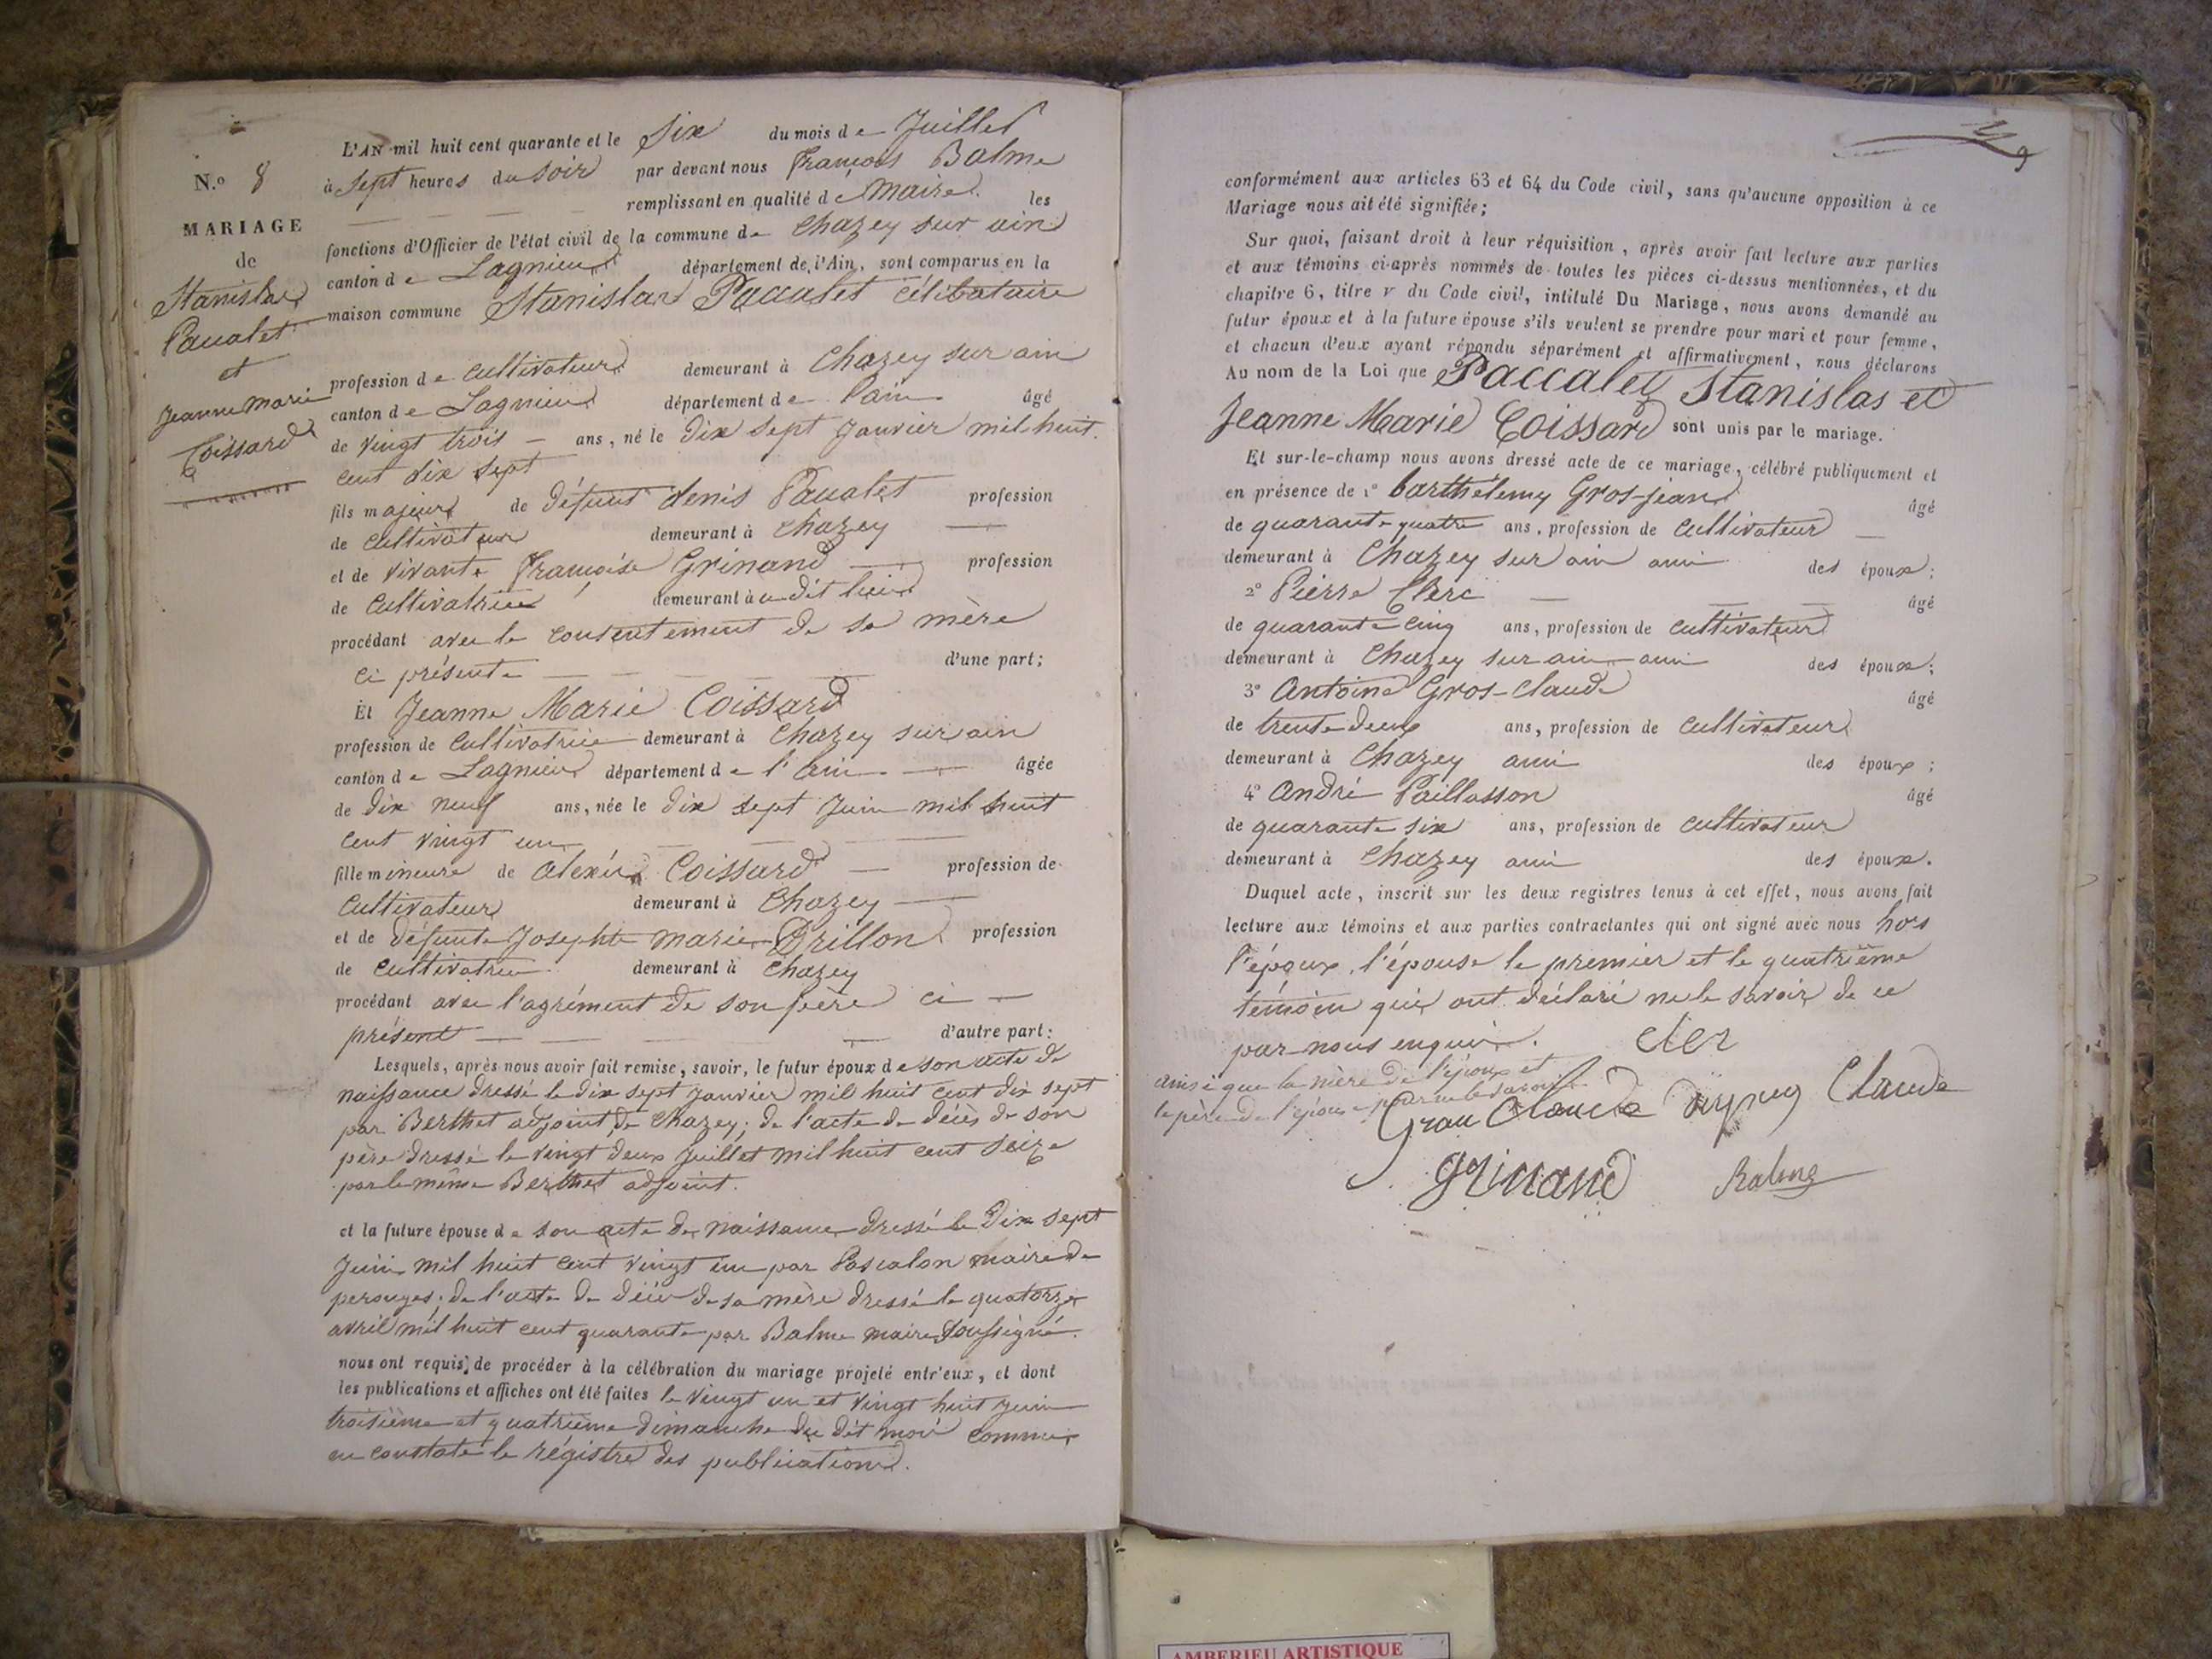 L'AN mil huit cent quarante et le six du mois de Juillet
N.o 8
à sept heures du soir par devant nous François Balme
remplissant en qualité de Maire les
MARIAGE
fonctions d'Officier de l'état civil de la commune de Chazey sur ain
de
canton de Lagnieu département de l'Ain, sont comparus en la
Stanislas
maison commune Stanislas Paccalet célibataire
Pacalet
et
profession de cultivateur demeurant à Chazey sur ain
Jeanne Marie
canton de Lagnieu département de l'ain âgé
Coissard
de vingt trois ans, né le dix sept Janvier mil huit
cent dix sept
fils majeur de défunt denis Pacalet profession
de cultivateur demeurant à Chazey
et de vivante Françoise Grinand profession
de cultivatrice demeurant à u dit lieu
procédant avec le consentement de sa mère
ci présente d'une part;
Et Jeanne Marie Coissard
profession de cultivatrice demeurant à Chazey sur ain
canton de Lagnieu département de l'ain âgée
de dix neuf ans, née le dix sept Juin mil huit
cent vingt un
fille mineure de alexis Coissard profession de
cultivateur demeurant à Chazey
et de défunte Josephte marie Drillon profession
de cultivatrice demeurant à Chazey
procédant avec l'agrément de son père ci
présent d'autre part:
Lesquels, après nous avoir fait remise, savoir, le futur époux de son acte de
naissance dressé le dix sept janvier mil huit cent dix sept
par Berthet adjoint de Chazey; de l'acte de décès de son
père dressé le vingt deux Juillet mil huit cent seize
par le même Berthet adjoint.
et la future épouse de son acte de naissance dressé le dix sept
Juin mil huit cent vingt un par Pascalon maire de
perouges; de l'acte de décès de sa mère dressé le quatorze
avril mil huit cent quarante par Balme maire soussigné.
nous ont requis de procéder à la célébration du mariage projeté entr'eux, et dont
les publications et affiches ont été faites le vingt un et vingt huit juin
troisième et quatrième dimanche du dit mois comme
en constate le régistre des publications.
conformément aux articles 63 et 64 du Code civil, sans qu'aucune opposition à ce
Mariage nous ait été signifiée;
Sur quoi, faisant droit à leur réquisition, après avoir fait lecture aux parties
et aux témoins ci-après nommés de toutes les pièces ci-dessus mentionnées, et du
chapitre 6, titre v du Code civil, intitulé Du Mariage, nous avons demandé au
futur époux et à la future épouse s'ils veulent se prendre pour mari et pour femme,
et chacun d'eux ayant répondu séparément et affirmativement, nous déclarons
Au nom de la Loi que Paccalet Stanislas et
Jeanne Marie Coissard sont unis par le mariage.
Et sur-le-champ nous avons dressé acte de ce mariage, célébré publiquement et
en présence de 1º barthélemy Gros-jean âgé
de quarante quatre ans, profession de cultivateur
demeurant à Chazey sur ain ami des époux;
2º Pierre Clerc âgé
de quarante cinq ans, profession de cultivateur
demeurant à Chazey sur ain ami des époux;
3º Antoine Gros-claude âgé
de trente deux ans, profession de cultivateur
demeurant à Chazey ami des époux;
4º André Paillasson âgé
de quarante six ans, profession de cultivateur
demeurant à Chazey ami des époux.
Duquel acte, inscrit sur les deux registres tenus à cet effet, nous avons fait
lecture aux témoins et aux parties contractantes qui ont signé avec nous hors
l'époux, l'épouse le premier et le quatrième
témoin qui ont déclaré ne le savoir de ce
par nous enquis. cler
ainsi que la mère de l'époux et
le père de l'épouse pour ne le savoir
Grau Claude Claude
grinand Balme
AMBERIEU ARTISTIQUE